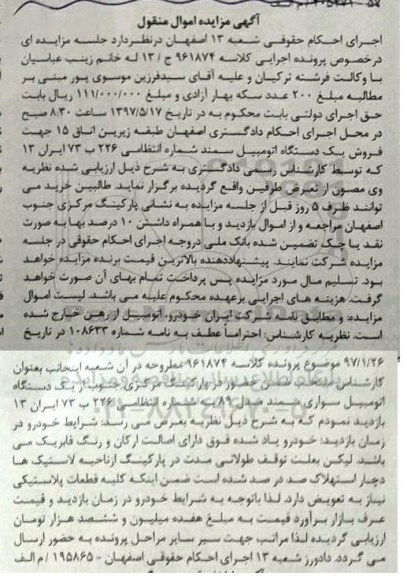 آگهی مزایده اموال منقول
اجرای احکام حقوقی شعبه ۱۳ اصفهان درنظردارد جلسه مزایده ای
درخصوص پرونده اجرایی کلاسه ۹۶۱۸۷۴ ج / ۱۳ له خانم زینب عباسیان
با وکالت فرشته ترکیان و علیه آقای سیدفرزین موسوی پور مبنی بر
مطالبه مبلغ ۲۰۰ عدد سکه بهار آزادی و مبلغ ۱۱۱/۰۰۰/۰۰۰ ریال بابت
حق اجرای دولتی بابت محکوم به در تاریخ ۱۳۹۷/۵/۱۷ ساعت ۸:۳۰ صبح
در محل اجرای احکام دادگستری اصفهان طبقه زیرین اتاق ۱۵ جهت
فروش یک دستگاه اتومبیل سمند شماره انتظامی ۲۲۶ ب ۷۳ ایران ۱۳
که توسط کارشناس رسمی دادگستری به شرح ذیل ارزیابی شده نظریه
وی مصون از تعرض طرفین واقع گردیده برگزار نماید. طالبین خرید می
توانند ظرف ۵ روز قبل از جلسه مزایده به نشانی پارکینگ مرکزی جنوب
اصفهان مراجعه و از اموال بازدید و با همراه داشتن ۱۰ درصد بها به صورت
نقد یا چک تضمین شده بانک ملی دروجه اجرای احکام حقوقی در جلسه
مزایده شرکت نمایند. پیشنهاددهنده بالاترین قیمت برنده مزایده خواهد
بود. تسلیم مال مورد مزایده پس پرداخت تمام بهای آن صورت خواهد
گرفت. هزینه های اجرایی برعهده محکوم علیه می باشد. لیست اموال
مزایده: و مطابق نامه شرکت ایران خودرو، اتومبیل از رهن خارج شده
است. نظریه کارشناس: احتراماً عطف به نامه شماره ۱۰۸۶۳۳ در تاریخ
۹۷/۱/۲۶ موضوع پرونده کلاسه ۹۶۱۸۷۴ مطروحه در آن شعبه اینجانب بعنوان
کارشناس حضور در پارکینگ مرکزی جنوب از یک دستگاه
اتومبیل سواری سمند مدل ۸۹ به شماره انتظامی ۲۲۶ ب ۷۳ ایران ۱۳
بازدید نمودم که به شرح ذیل نظریه بعرض می رسد: شرایط خودرو در
زمان بازدید: خودرو یاد شده فوق دارای اصالت ارکان و رنگ فابریک می
باشد. لیکن بعلت توقف طولانی مدت در پارکینگ ازناحیه لاستیک ها
دچار استهلاک صد در صد شده است ضمن اینکه کلیه قطعات پلاستیکی
نیاز به تعویض دارد. لذا باتوجه به شرایط خودرو در زمان بازدید و قیمت
عرف بازار برآورد قیمت به مبلغ هفده میلیون و ششصد هزار تومان
ارزیابی گردیده لذا مراتب جهت سیر سایر مراحل پرونده به حضور ارسال
می گردد. دادورز شعبه ۱۳ اجرای احکام حقوقی اصفهان - ۱۹۵۸۶۵ / م الف